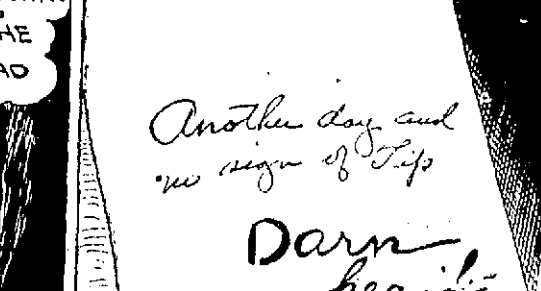 HE
Another day and
no sign of Tip
Darn